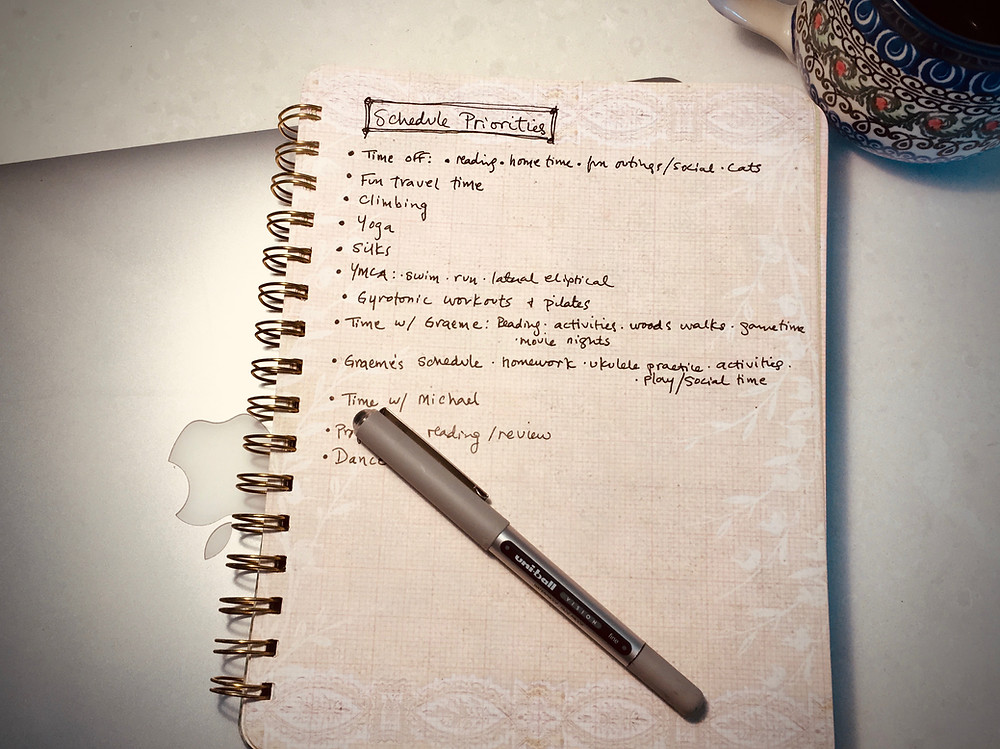 Schedule Priorities
• Time off: • reading • home time • fun outings/social • cats
• Fun travel time
• Climbing
• Yoga
• Silks
• YMCA: • swim • run • lateral elliptical
• Gyrotonic workouts + pilates
• Time w/ Graeme: Reading • activities • woods walks • gametime
• movie nights
• Graeme's Schedule • homework • ukulele practice • activities •
• play/social time
• Time w/ Michael
• reading/review
• Dance
uni-ball VISION fine